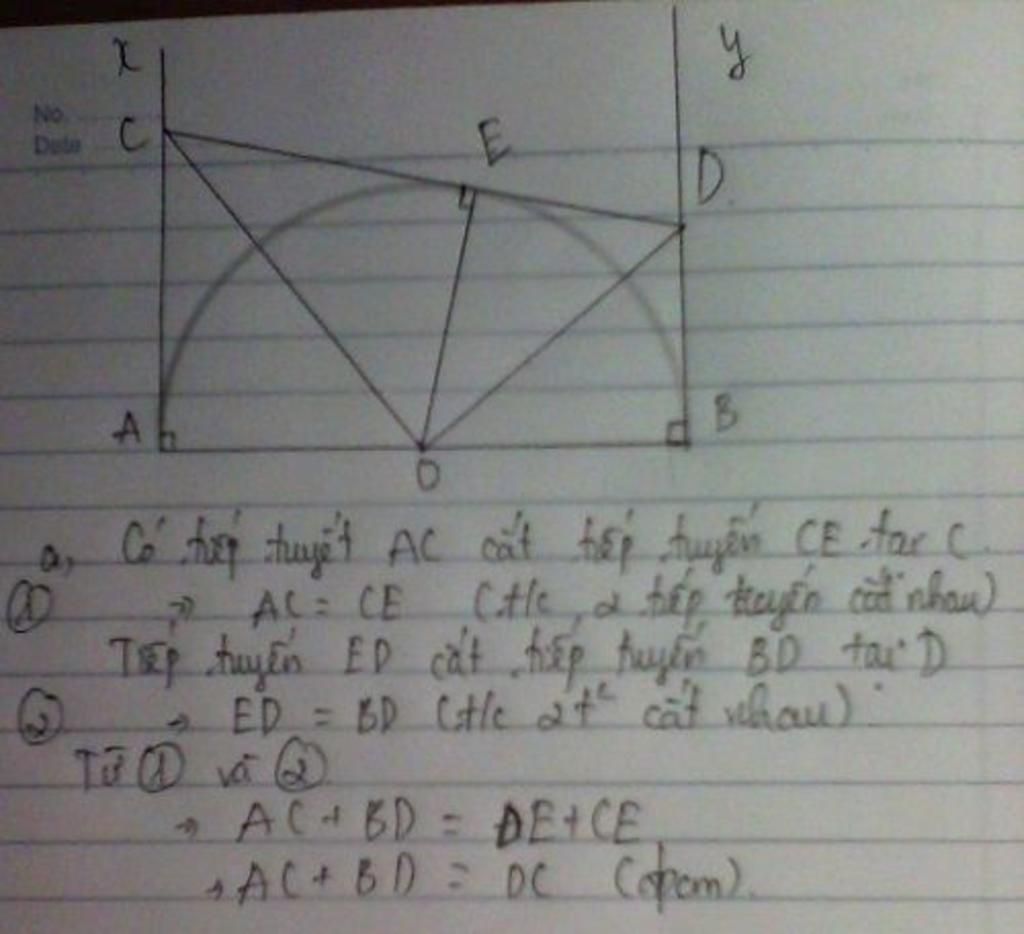 x y
No.
Date
C E
D
A B
O
a, Có tiếp tuyết AC cắt tiếp tuyến CE tại C.
① → AC = CE (t/c 2 tiếp tuyến cắt nhau)
Tiếp tuyến ED cắt tiếp tuyến BD tại D
② → ED = BD (t/c 2 t² cắt nhau)
Từ ① và ②
→ AC + BD = DE + CE
→ AC + BD = DC (đpcm).